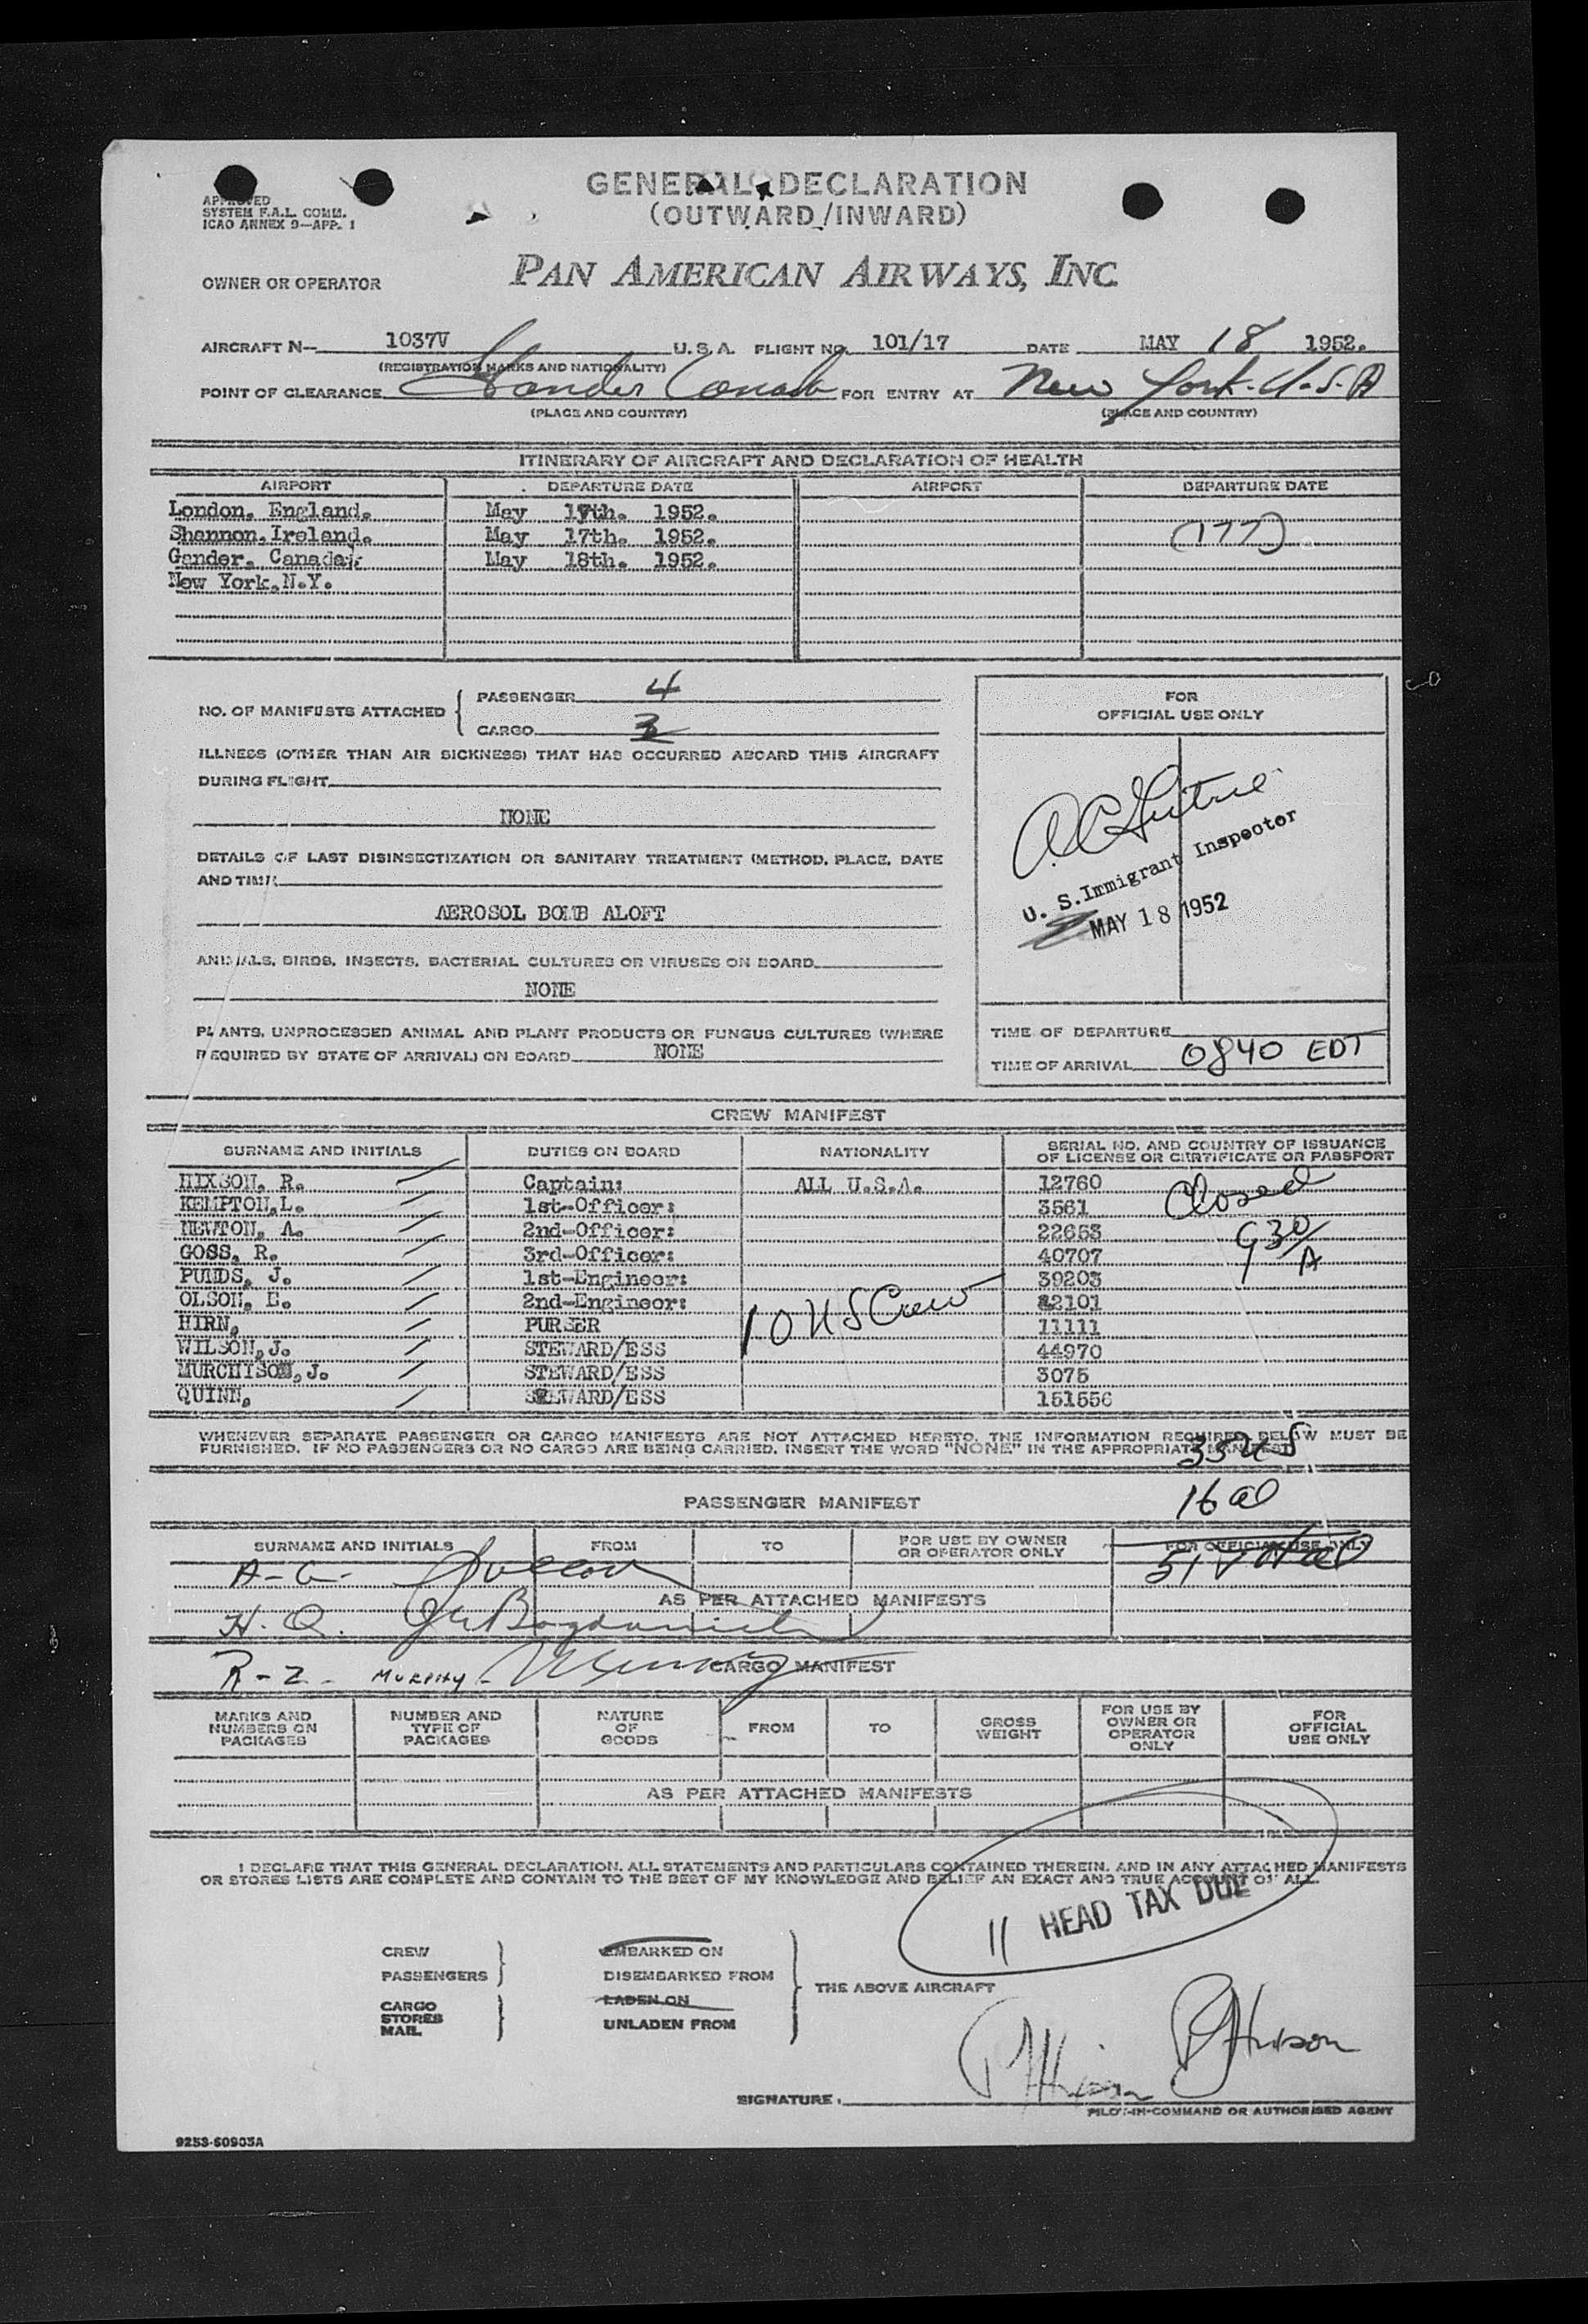 APPROVED
SYSTEM F.A.L. COMM.
ICAO ANNEX 9—APP. 1
GENERAL DECLARATION
(OUTWARD/INWARD)
OWNER OR OPERATOR PAN AMERICAN AIRWAYS, INC.
AIRCRAFT N— 1037V U.S.A. FLIGHT NO. 101/17 DATE MAY 18 1952.
(REGISTRATION MARKS AND NATIONALITY)
POINT OF CLEARANCE Gander Canada FOR ENTRY AT New York. U.S.A
(PLACE AND COUNTRY) (PLACE AND COUNTRY)
ITINERARY OF AIRCRAFT AND DECLARATION OF HEALTH
AIRPORT DEPARTURE DATE AIRPORT DEPARTURE DATE
London, England. May 17th. 1952.
Shannon, Ireland. May 17th. 1952. (177)
Gander, Canada. May 18th. 1952.
New York, N.Y.
NO. OF MANIFESTS ATTACHED { PASSENGER 4
CARGO
ILLNESS (OTHER THAN AIR SICKNESS) THAT HAS OCCURRED ABOARD THIS AIRCRAFT
DURING FLIGHT
NONE
DETAILS OF LAST DISINSECTIZATION OR SANITARY TREATMENT (METHOD, PLACE, DATE
AND TIME
AEROSOL BOMB ALOFT
ANIMALS, BIRDS, INSECTS, BACTERIAL CULTURES OR VIRUSES ON BOARD
NONE
PLANTS, UNPROCESSED ANIMAL AND PLANT PRODUCTS OR FUNGUS CULTURES (WHERE
REQUIRED BY STATE OF ARRIVAL) ON BOARD NONE
FOR
OFFICIAL USE ONLY
U. S. Immigrant Inspector
MAY 18 1952
TIME OF DEPARTURE
TIME OF ARRIVAL 0840 EDT
CREW MANIFEST
SURNAME AND INITIALS DUTIES ON BOARD NATIONALITY SERIAL NO. AND COUNTRY OF ISSUANCE
OF LICENSE OR CERTIFICATE OR PASSPORT
HIXSON, R. Captain: ALL U.S.A. 12760 Closed
KEMPTON, L. 1st-Officer: 3561
NEWTON, A. 2nd-Officer: 22653 930/A
GOSS, R. 3rd-Officer: 40707
PUNDS, J. 1st-Engineer: 39203
OLSON, E. 2nd-Engineer: 82101
HIRN, PURSER 10 US Crew 11111
WILSON, J. STEWARD/ESS 44970
MURCHISON, J. STEWARD/ESS 3075
QUINN, STEWARD/ESS 151556
WHENEVER SEPARATE PASSENGER OR CARGO MANIFESTS ARE NOT ATTACHED HERETO, THE INFORMATION REQUIRED BELOW MUST BE
FURNISHED. IF NO PASSENGERS OR NO CARGO ARE BEING CARRIED, INSERT THE WORD "NONE" IN THE APPROPRIATE MANIFEST
35 US
PASSENGER MANIFEST 16 al
SURNAME AND INITIALS FROM TO FOR USE BY OWNER
OR OPERATOR ONLY FOR OFFICIAL USE ONLY
51 Total
A-G-
AS PER ATTACHED MANIFESTS
H. Q.
R-Z- MURPHY-
CARGO MANIFEST
MARKS AND
NUMBERS ON
PACKAGES NUMBER AND
TYPE OF
PACKAGES NATURE
OF
GOODS FROM TO GROSS
WEIGHT FOR USE BY
OWNER OR
OPERATOR
ONLY FOR
OFFICIAL
USE ONLY
AS PER ATTACHED MANIFESTS
I DECLARE THAT THIS GENERAL DECLARATION, ALL STATEMENTS AND PARTICULARS CONTAINED THEREIN, AND IN ANY ATTACHED MANIFESTS
OR STORES LISTS ARE COMPLETE AND CONTAIN TO THE BEST OF MY KNOWLEDGE AND BELIEF AN EXACT AND TRUE ACCOUNT OF ALL.
11 HEAD TAX DUE
CREW
PASSENGERS }
CARGO
STORES
MAIL }
EMBARKED ON
DISEMBARKED FROM
LADEN ON
UNLADEN FROM
} THE ABOVE AIRCRAFT
SIGNATURE
PILOT-IN-COMMAND OR AUTHORISED AGENT
9253-60905A